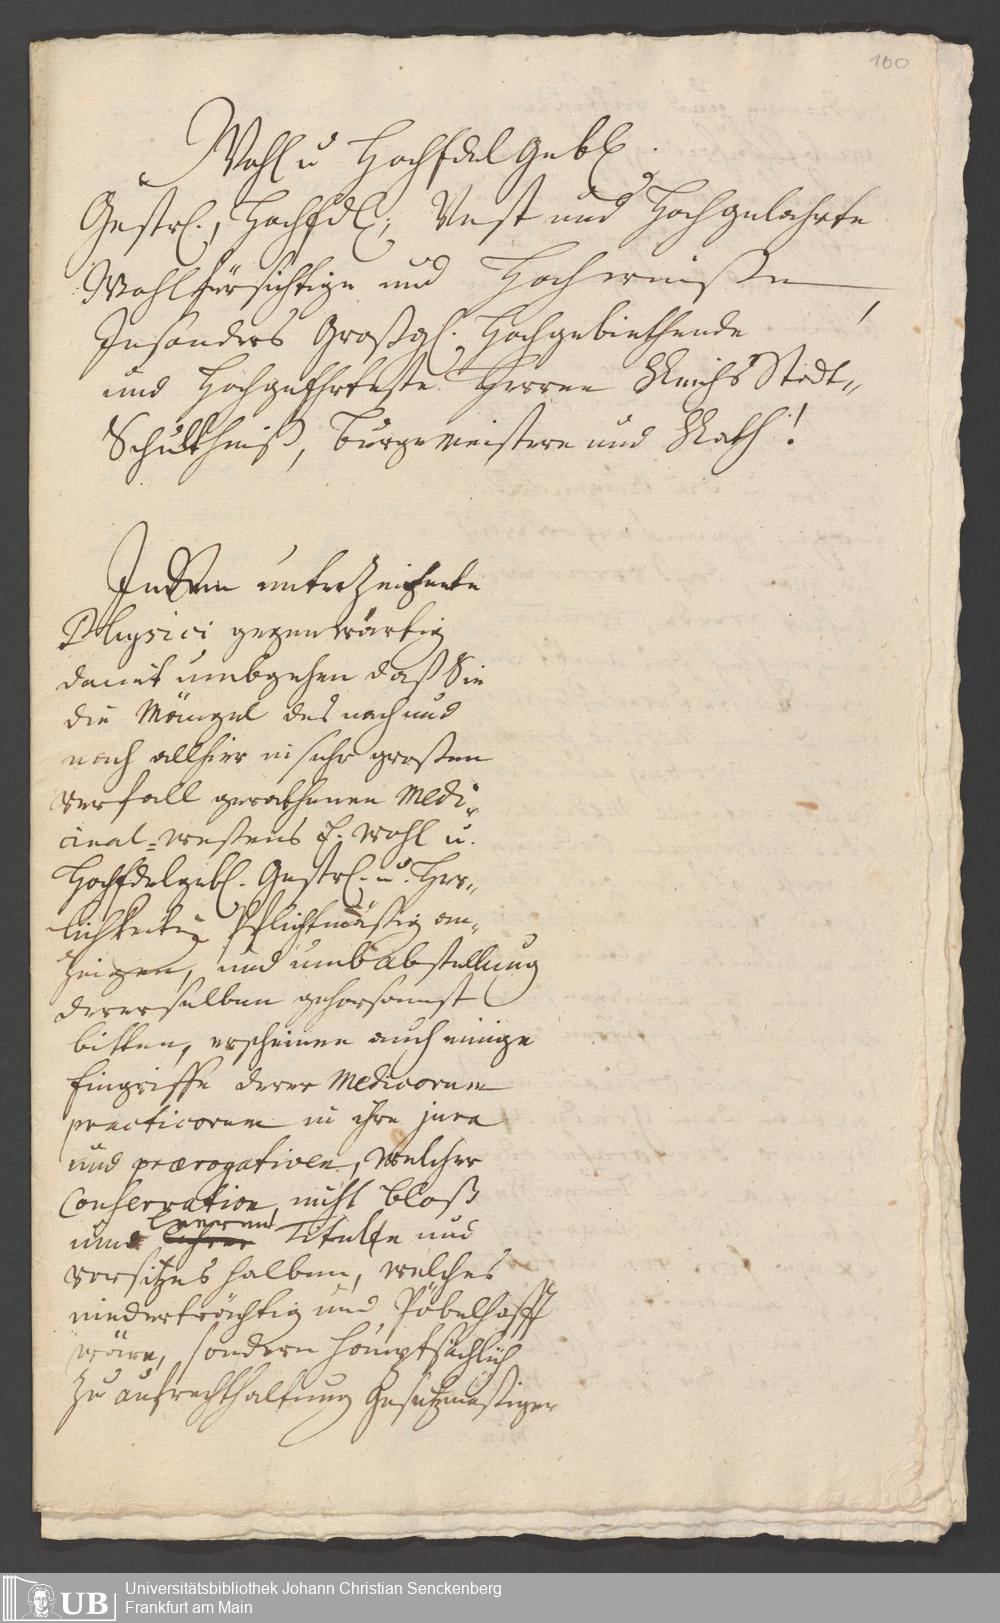 100
Wohl u Hochedel Gebl.
Gestrl., Hochedl., Vest und Hochgelahrte
Wohlfürsichtige und Hochweiße
Insonders Großgl. Hochgebiethende
und Hochgeehrteste Herren Reichs Stadt-
Schultheiß, Burgemeistere und Rath!
Indem unterzeichnete
Physici gegenwärtig
damit umbgehen daß Sie
die Mängel des nach und
nach allhier in sehr großen
verfall gerathenen Medi-
cinal-wesens E. Wohl u.
Hochedelgebl. Gestrl. u. Herr-
lichkeiten Pflichtmäßig an-
zeigen, und umb Abstellung
dererselben gehorsamst
bitten, erscheinen auch einige
Eingriffe derer Medicorum
practicorum in ihre jura
und praerogativen, welcher
Conservation, nicht bloß
um leeren Titulen und
vorsitzes halben, welches
niederträchtig und Pöbelhafft
wäre, sondern hauptsächlich
zu aufrechthaltung Gesetzmäßiger
UB
Universitätsbibliothek Johann Christian Senckenberg
Frankfurt am Main